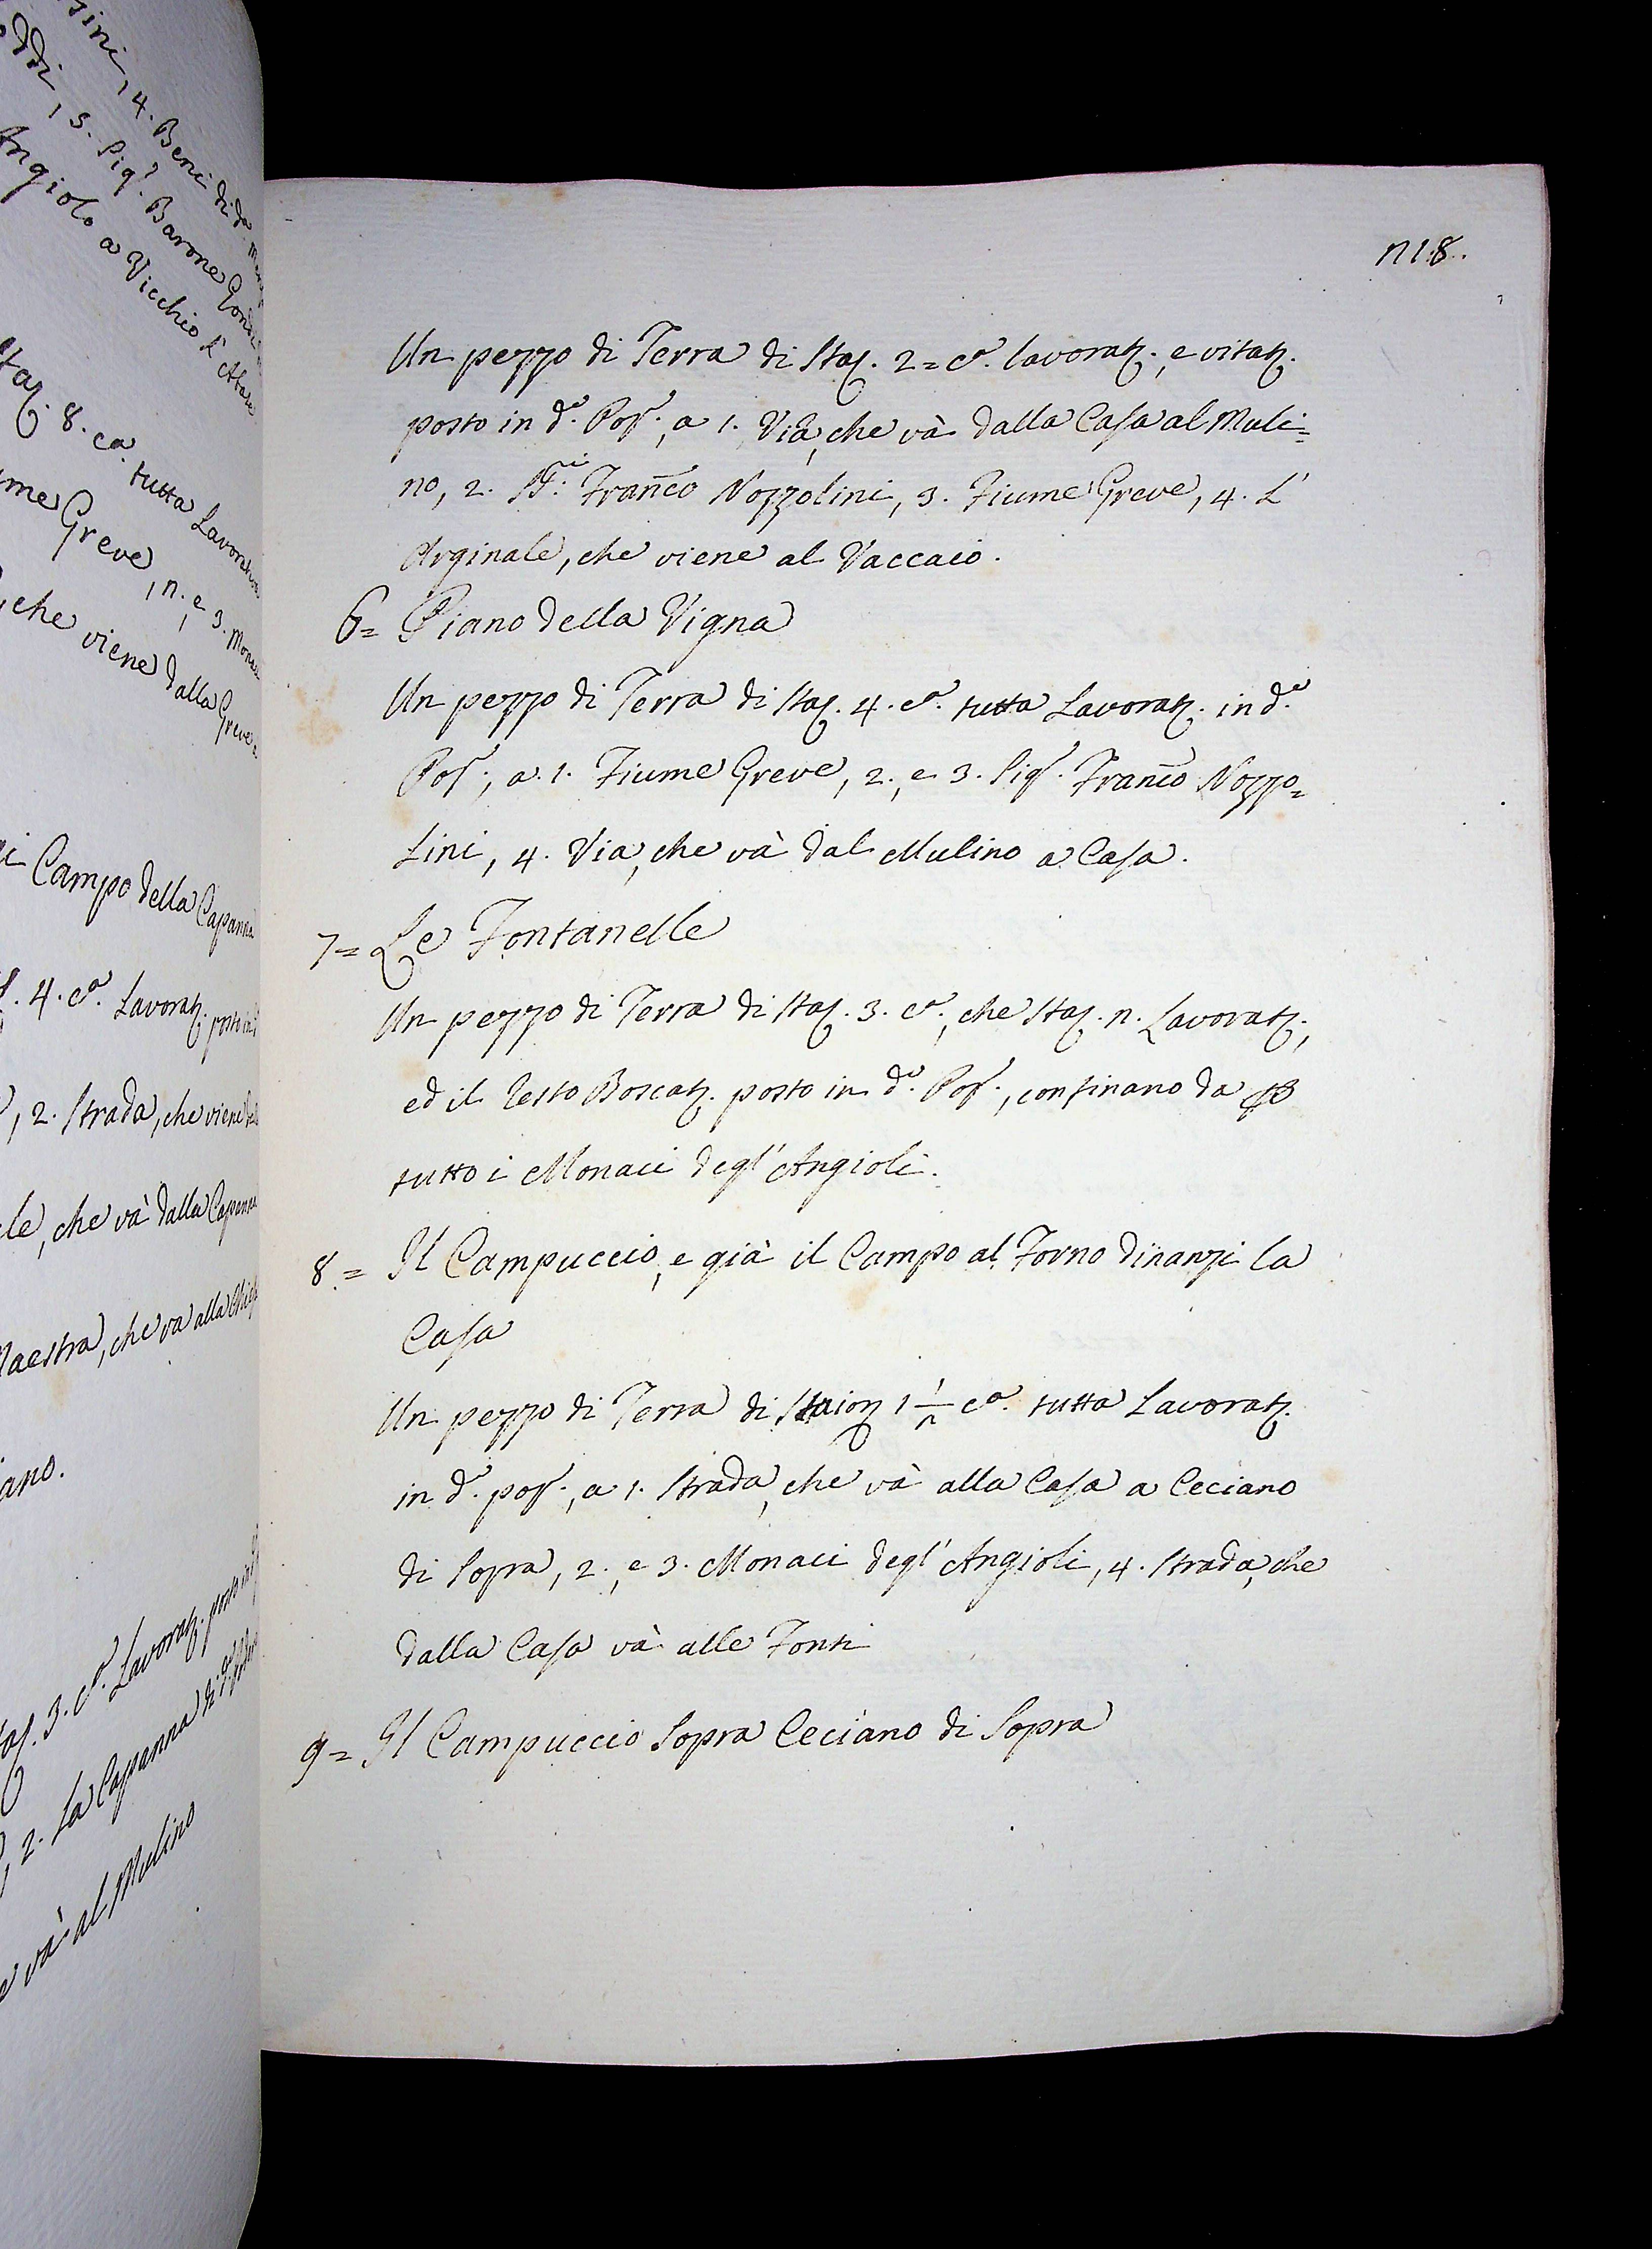 sini, 4. Beni di d.o
ddi, 3. Sig.r Barone
Angiolo a Vicchio l'
Sta. 8. ca. tutta Lavorat
me Greve, n., e 3. Mona
, che viene dalla Greve
Campo della Capanna
. 4. c.a Lavorat. posto in
, 2. Strada, che viene
le, che và dalla Capanna
Maestra, che va alla
iano.
3. c.a Lavorat. posto in
, 2. La Capanna di
và al Mulino
n18.
Un pezzo di Terra di Sta. 2= c.a lavorat., e vitat.
posto in d.o Pop., a 1. Via, che và dalla Casa al Muli=
no, 2. Franco Nozzolini, 3. Fiume Greve, 4. L'
Arginale, che viene al Vaccaio.
6= Piano della Vigna
Un pezzo di Terra di Sta. 4. c.a tutta Lavorat. in d.o
Pop., a. 1. Fiume Greve, 2., e 3. Sig. Franco Nozzo=
lini, 4. Via, che và dal Mulino a Casa.
7= Le Fontanelle
Un pezzo di Terra di Sta. 3. c.a, che Sta. n. Lavorat.,
ed il resto Boscat. posto in d.o Pop., confinano da
tutto i Monaci degl'Angioli.
8.= Il Campuccio, e già il Campo al Forno dinanzi la
Casa
Un pezzo di Terra di Staior 1 1/n c.a tutta Lavorat.
in d.o pop., a 1. Strada, che và alla Casa a Ceciano
di Sopra, 2., e 3. Monaci degl'Angioli, 4. Strada, che
dalla Casa và alle Fonti
9= Il Campuccio Sopra Ceciano di Sopra